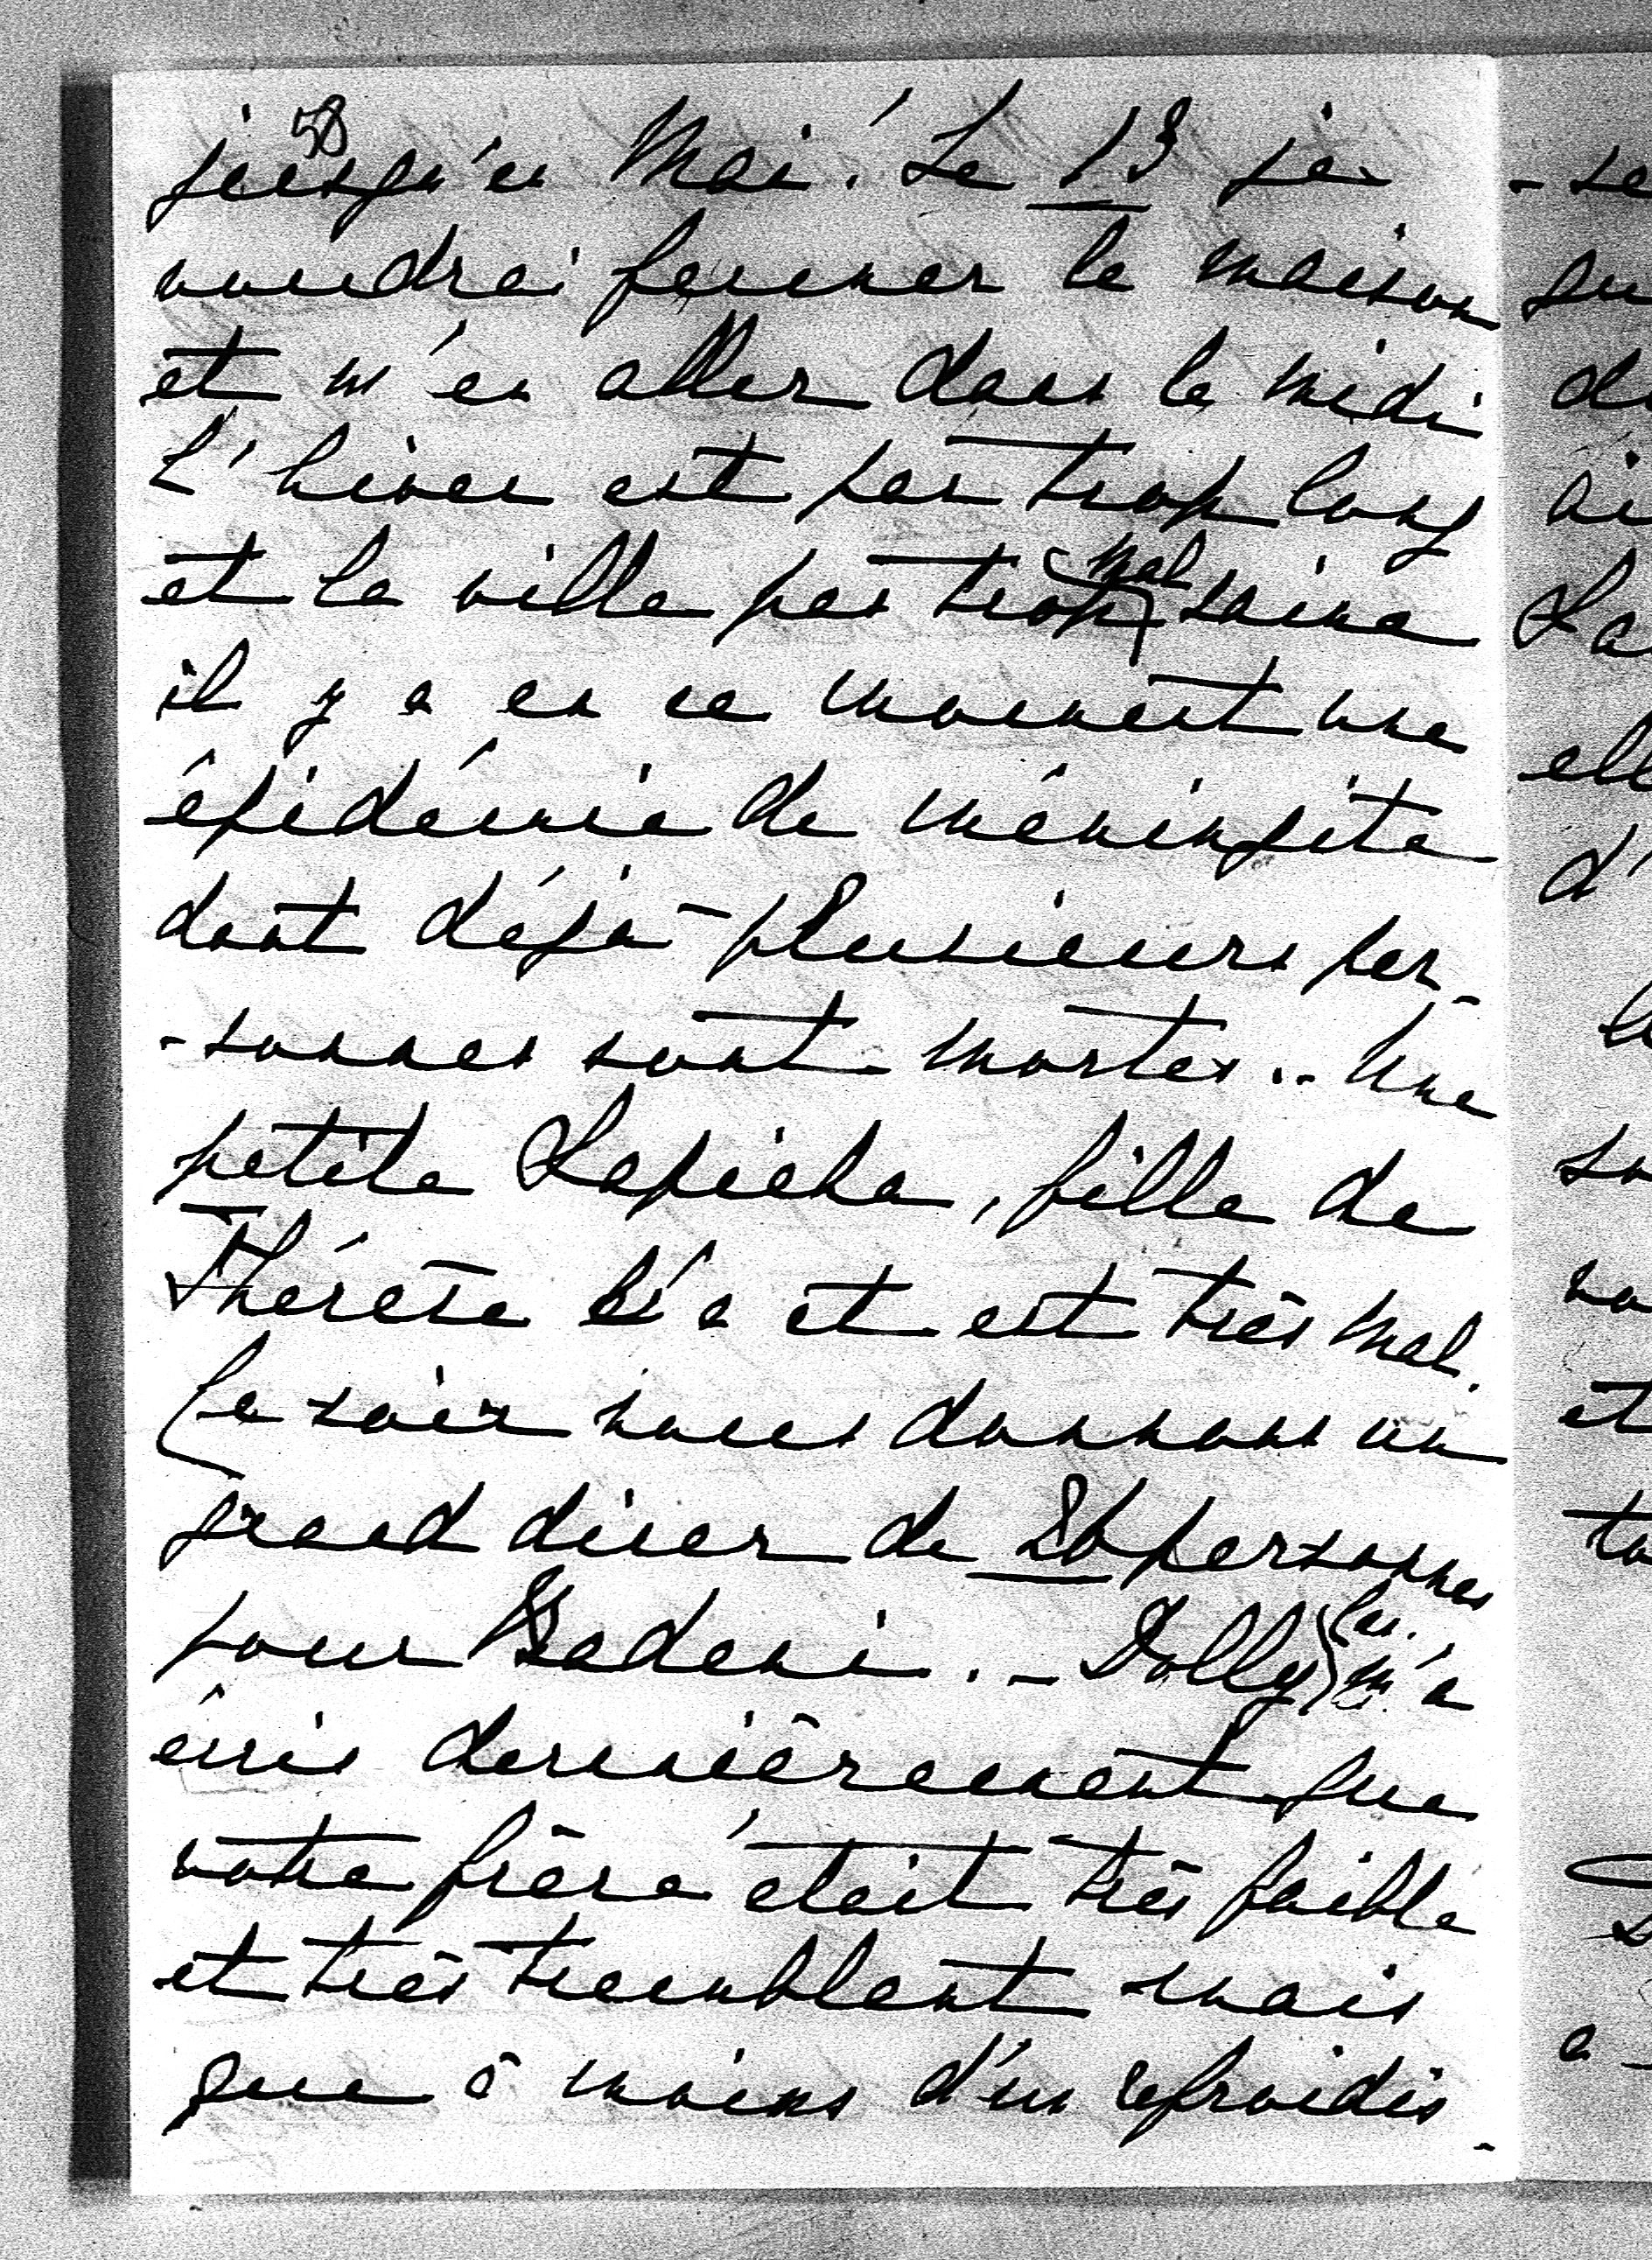 58
jusqu'en Mai! Le 13 je
voudrai fermer la maison
et m'en aller dans le midi
L'hiver est par trop long
et la ville par trop mal saine
il y a en ce moment une
épidémie de méningite
dont déjà plusieurs per-
-sonnes sont mortes.. Une
petite Sapieha, fille de
Thérèse l'a et est très mal.
Ce soir nous donnons un
grand diner de 26 personnes
pour Badeni. - Dolly m'a
écris dernièrement que
votre frère était très faible
et très tremblant mais
que à moins d'un refroidis-